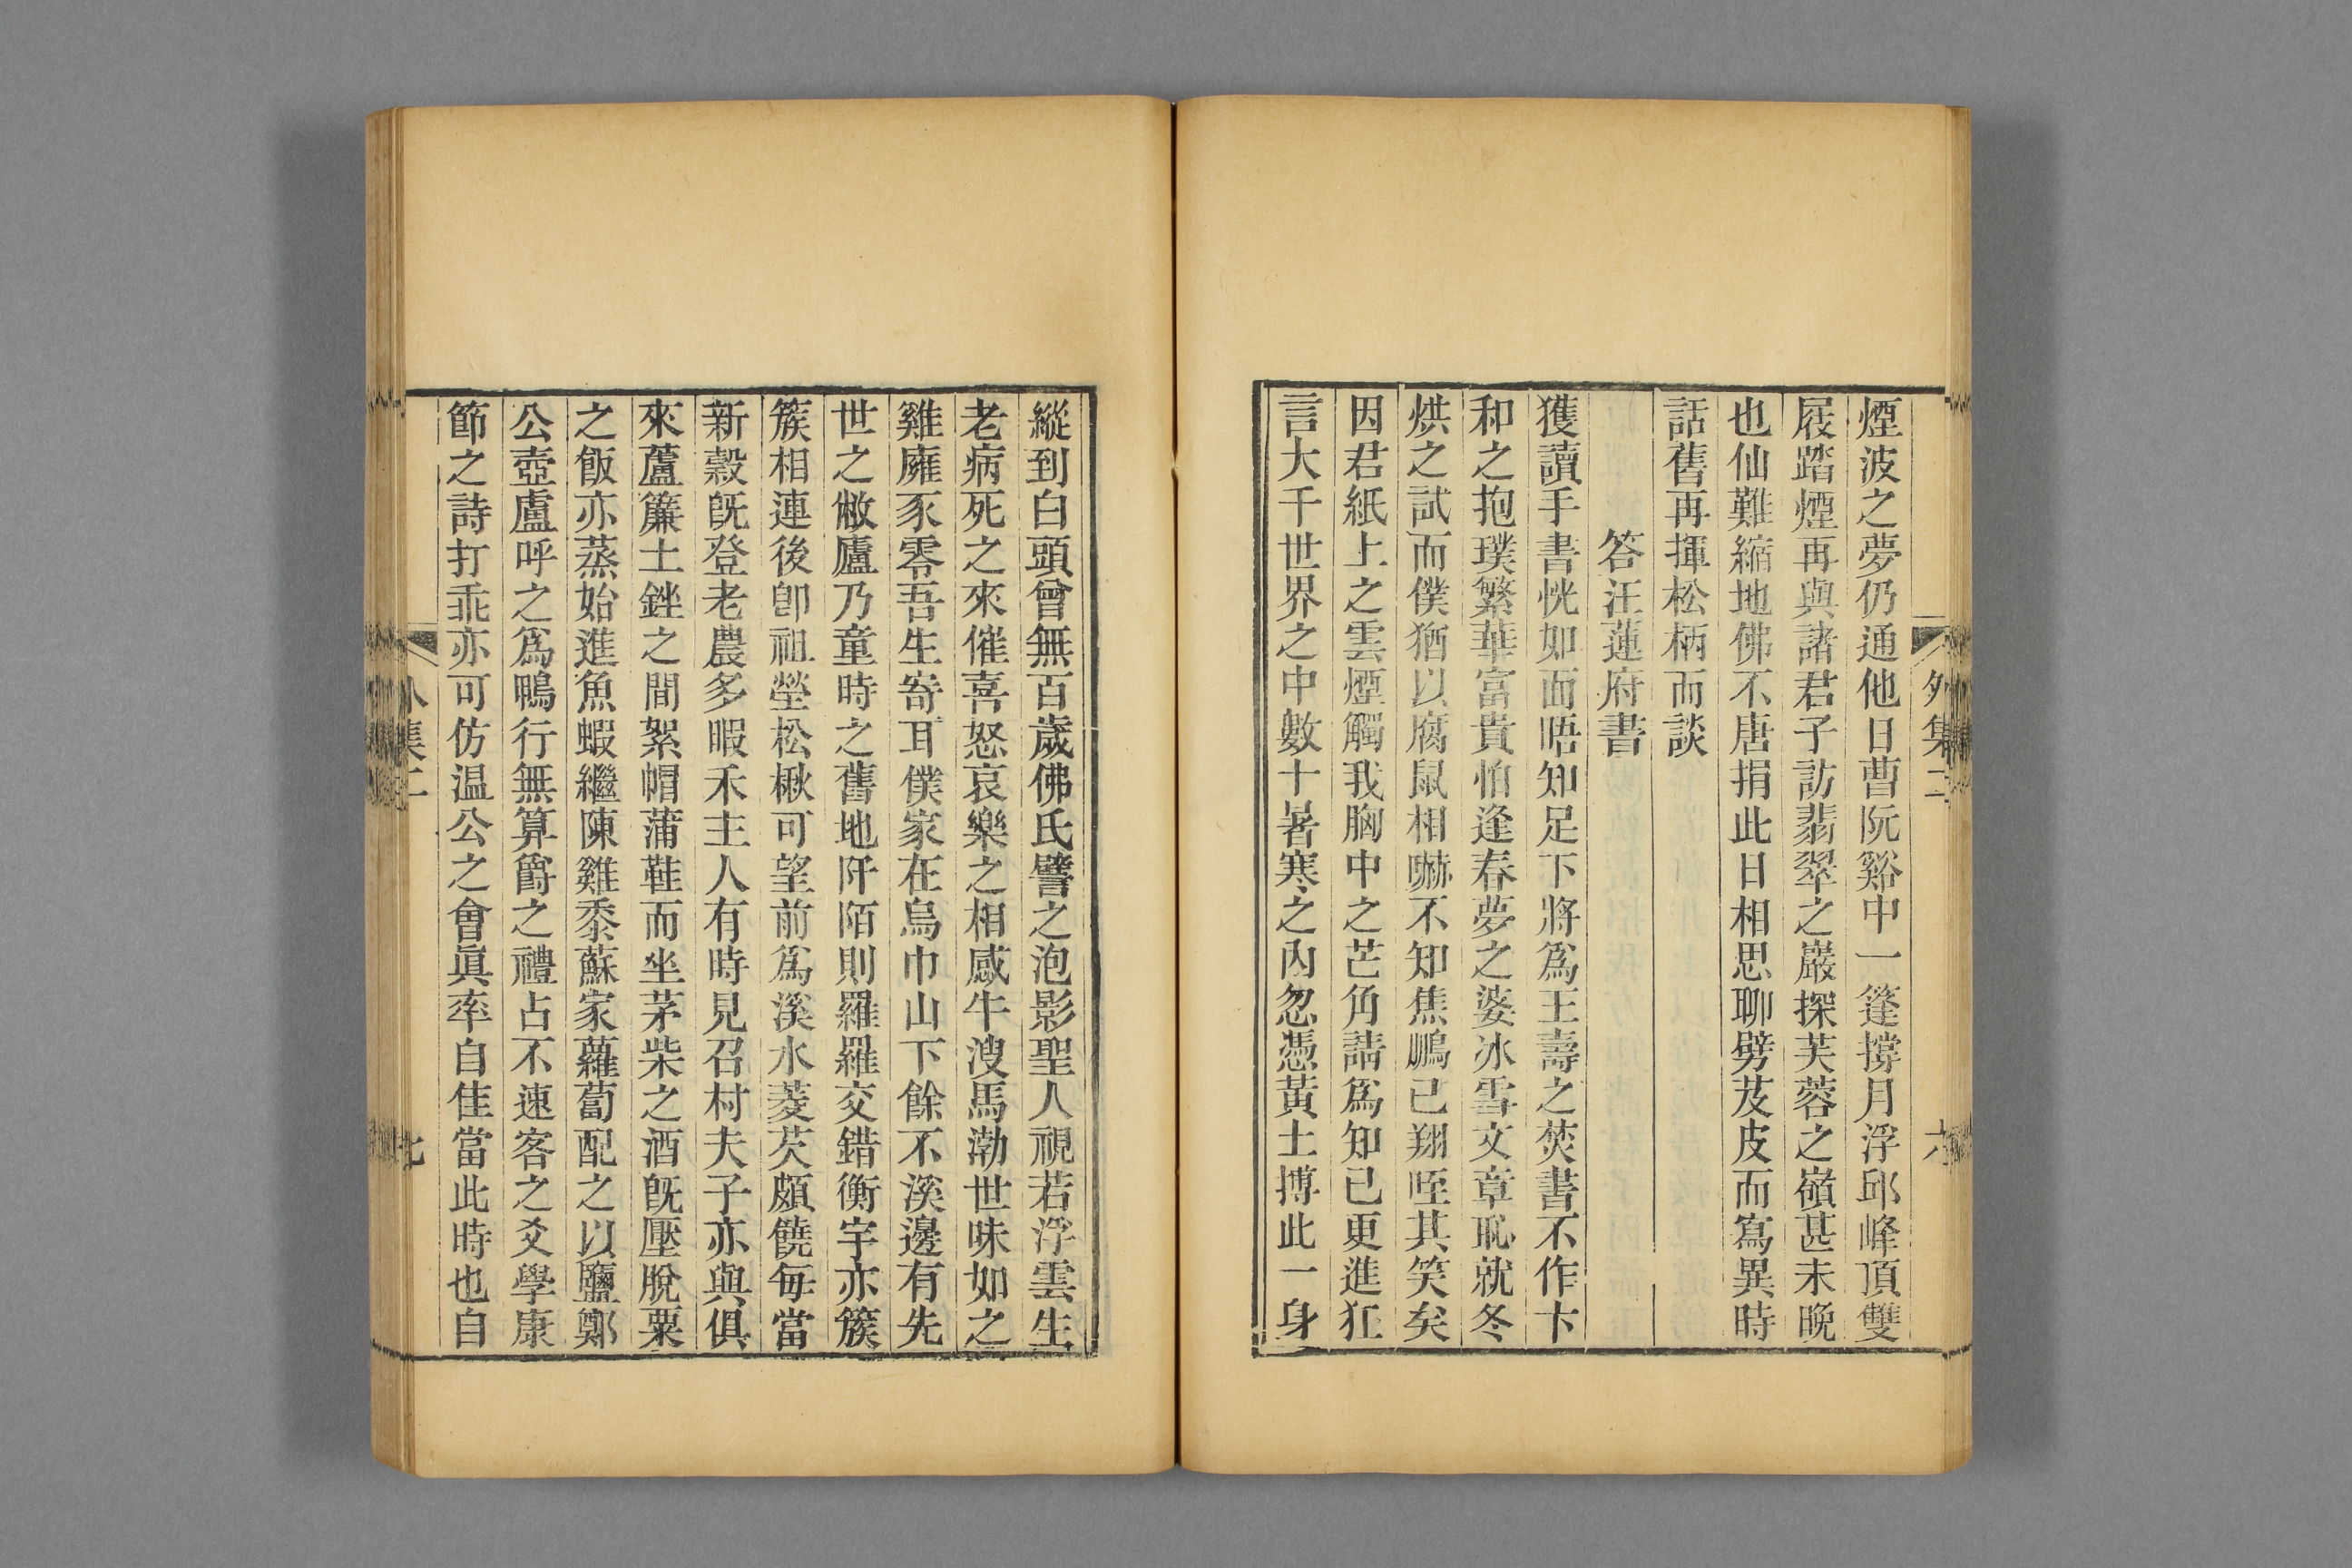 外集二
六
煙波之夢仍通他日曹阮谿中一篷撐月浮邱峰頂雙
屐踏煙再與諸君子訪翡翠之巖探芙蓉之嶺甚未晚
也仙難縮地佛不唐捐此日相思聊劈芨皮而寫異時
話舊再揮松柄而談
答汪蓮府書
獲讀手書恍如面晤知足下將爲王壽之焚書不作卞
和之抱璞繁華富貴怕逢春夢之婆冰雪文章恥就冬
烘之試而僕猶以腐鼠相嚇不知焦鵬已翔咥其笑矣
因君紙上之雲煙觸我胸中之芒角請爲知己更進狂
言大千世界之中數十暑寒之內忽憑黃土搏此一身
縱到白頭曾無百歲佛氏譬之泡影聖人視若浮雲生
老病死之來催喜怒哀樂之相感牛溲馬渤世味如之
雞廱豕零吾生寄耳僕家在烏巾山下餘不溪邊有先
世之敝廬乃童時之舊地阡陌則羅羅交錯衡宇亦簇
簇相連後卽祖塋松楸可望前爲溪水菱芡頗饒每當
新穀旣登老農多暇禾主人有時見召村夫子亦與俱
來蘆簾土銼之間絮帽蒲鞋而坐茅柴之酒旣壓脫粟
之飯亦蒸始進魚蝦繼陳雞黍蘇家蘿蔔配之以鹽鄭
公壺盧呼之爲鴨行無算爵之禮占不速客之爻學康
節之詩打乖亦可仿温公之會眞率自佳當此時也自
外集二
七